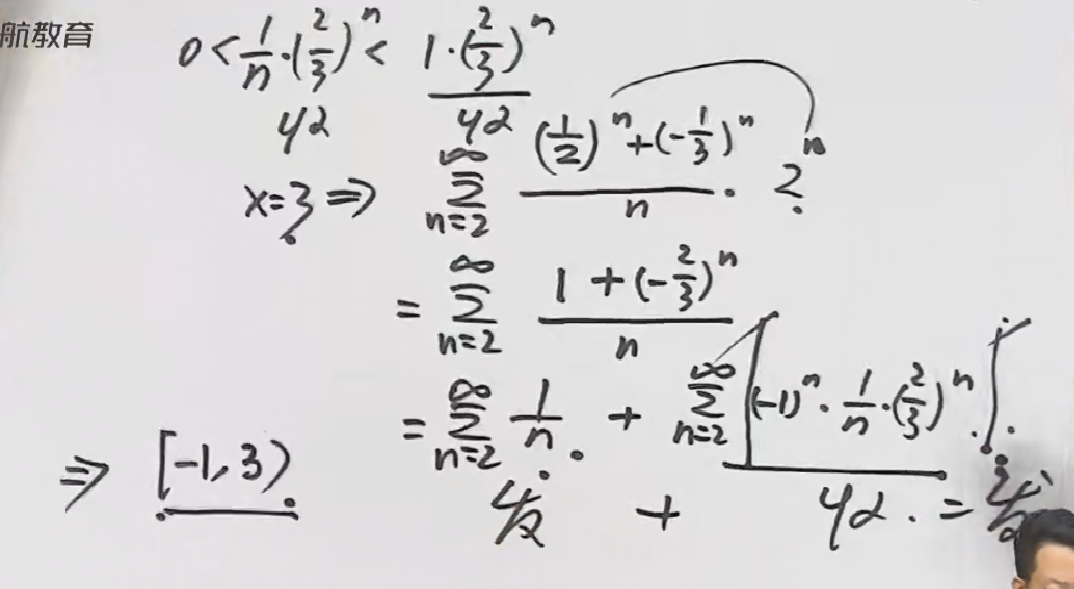 航教育
0 < 1/n · (2/3)^n < 1 · (2/3)^n
收 收
x=3 ⇒ ∑_{n=2}^{∞} ((1/2)^n + (-1/3)^n)/n · 2^n
= ∑_{n=2}^{∞} (1 + (-2/3)^n)/n
= ∑_{n=2}^{∞} 1/n · + ∑_{n=2}^{∞} |(-1)^n · 1/n · (2/3)^n| ·
⇒ [-1, 3) 发 + 收 . = 发